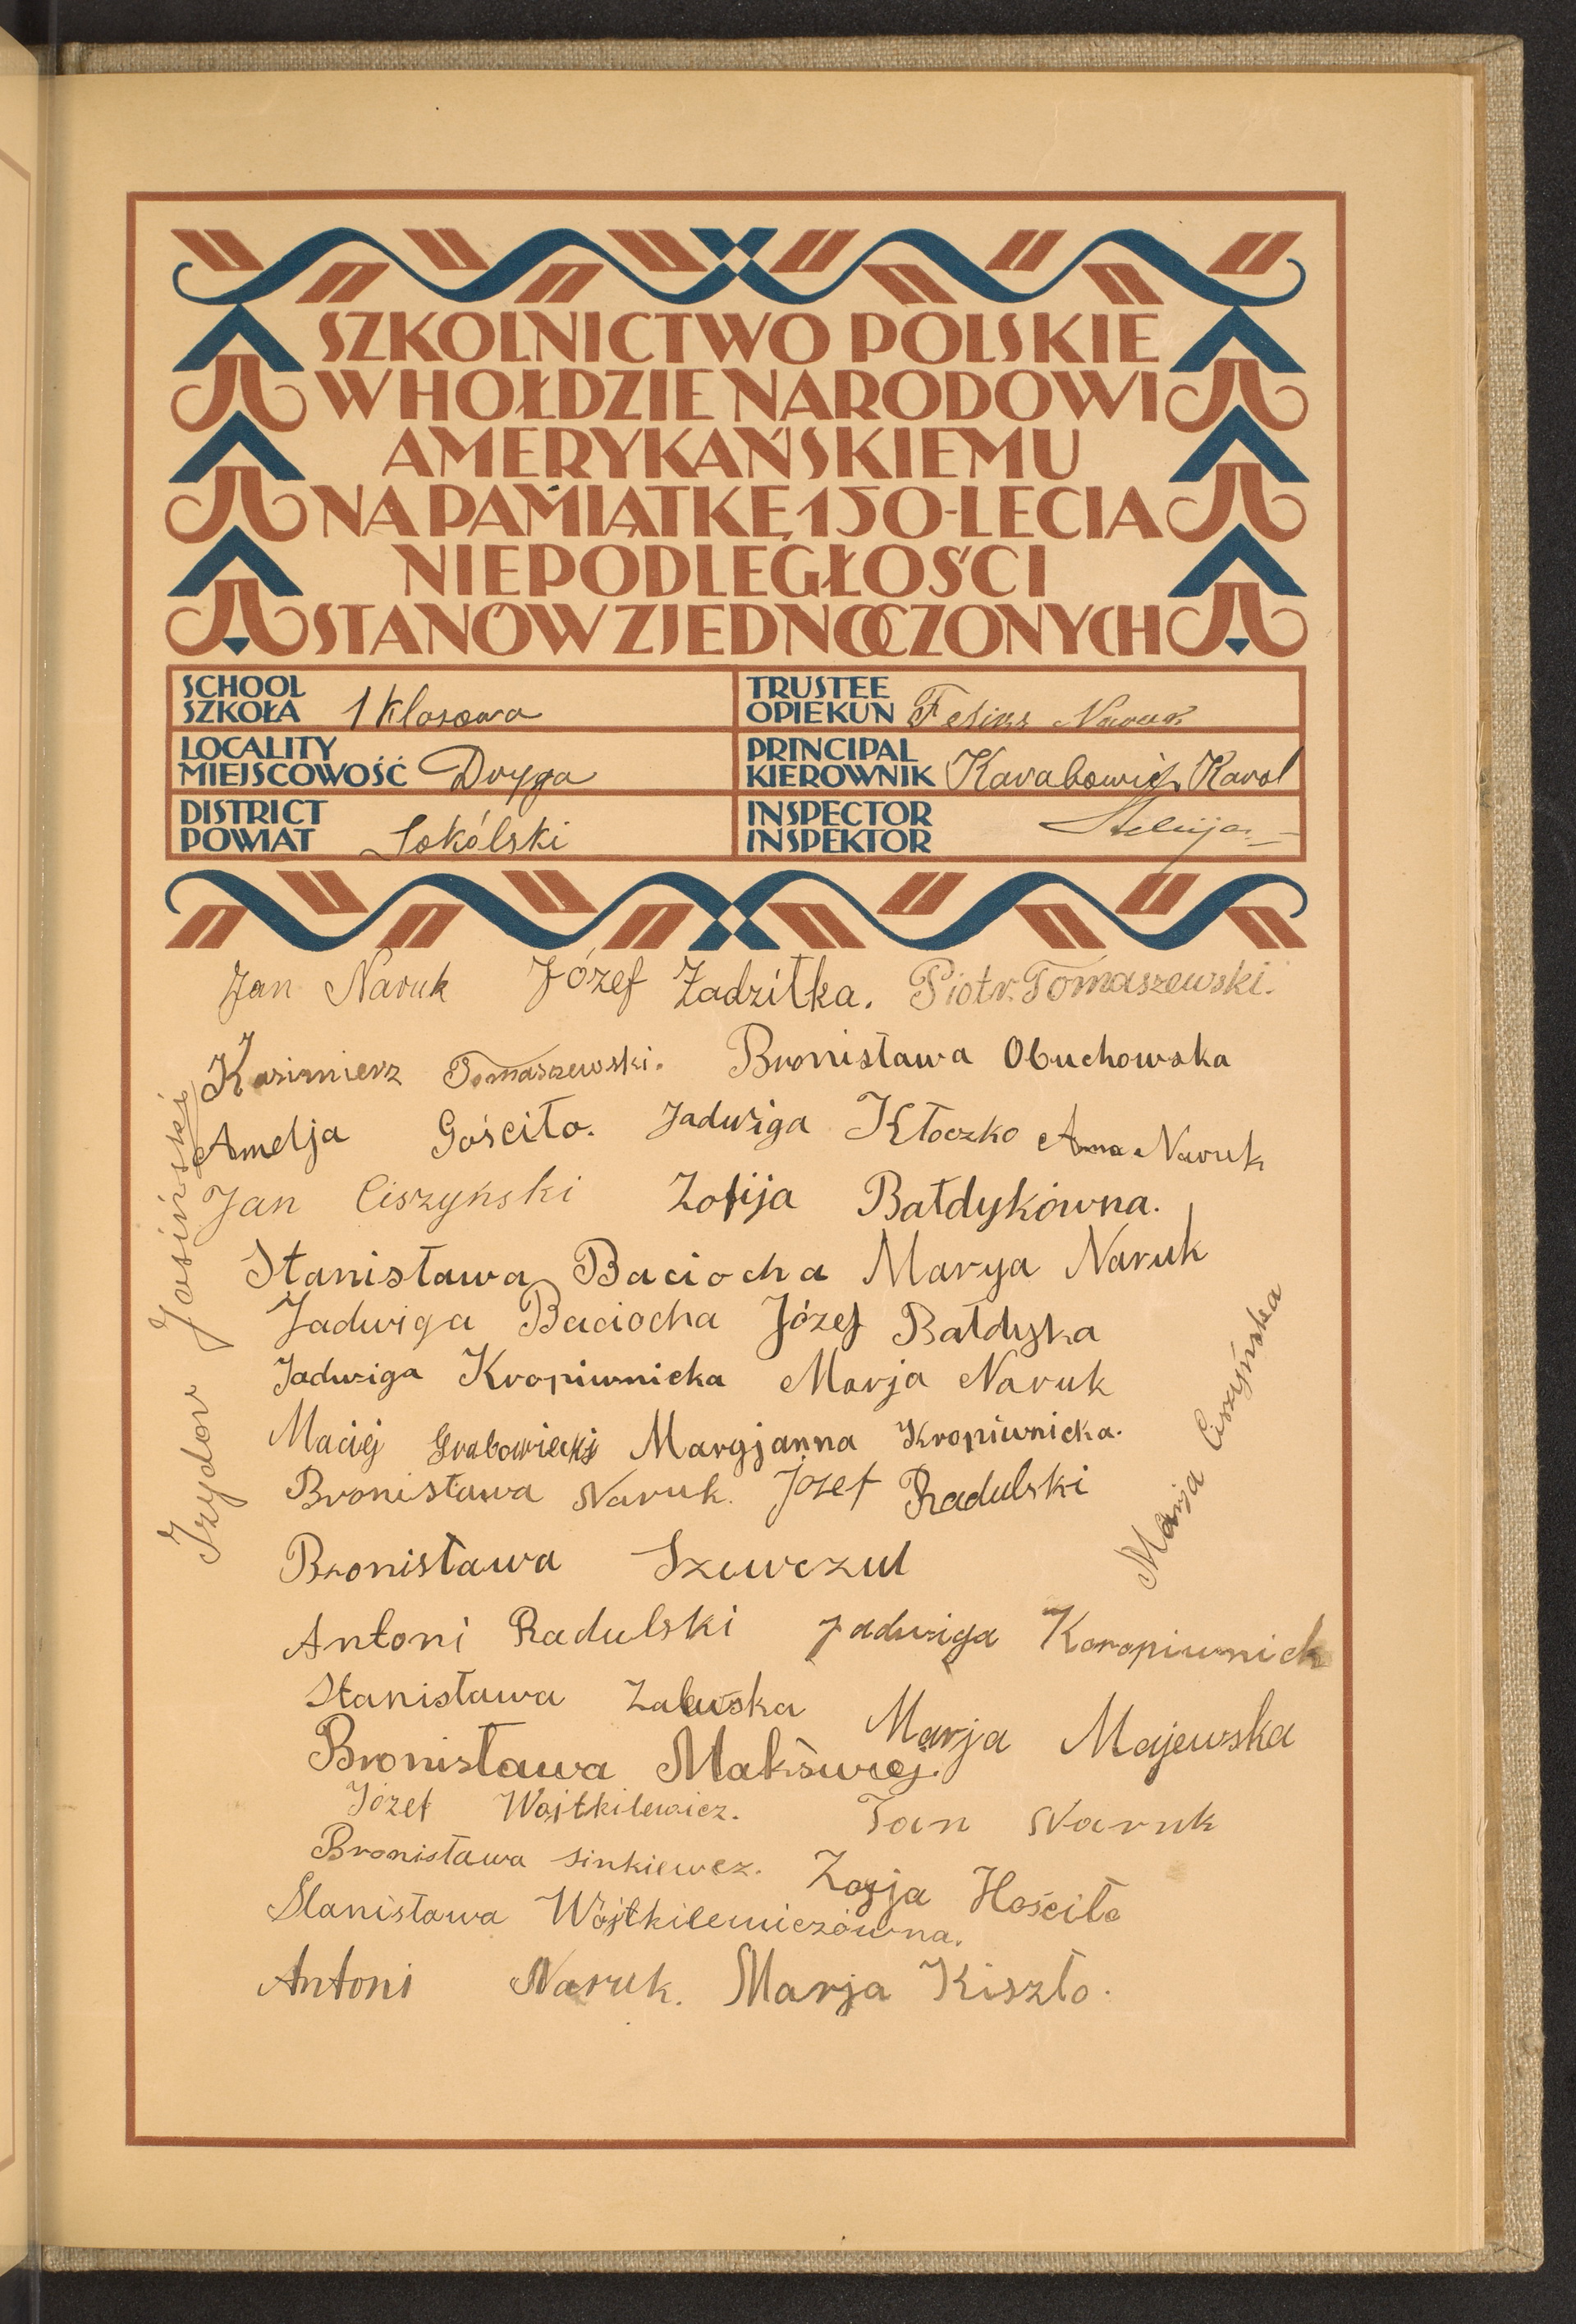 SZKOLNICTWO POLSKIE
W HOŁDZIE NARODOWI
AMERYKAŃSKIEMU
NA PAMIĄTKĘ 150-LECIA
NIEPODLEGŁOŚCI
STANÓW ZJEDNOCZONYCH
SCHOOL
SZKOŁA 1 klasowa
TRUSTEE
OPIEKUN Feliks Naruk
LOCALITY
MIEJSCOWOŚĆ Dryga
PRINCIPAL
KIEROWNIK Karabowicz Karol
DISTRICT
POWIAT Sokólski
INSPECTOR
INSPEKTOR
Jan Naruk Józef Żadziłka. Piotr. Tomaszewski.
Kazimierz Tomaszewski. Bronisława Obuchowska
Amelja Gościło. Jadwiga Kłoczko Anna Naruk
Jan Ciszyński Zofija Bałdykówna.
Stanisława Baciocha Marya Naruk
Jadwiga Baciocha Józef Bałdyka
Jadwiga Kropiwnicka Marja Naruk
Maciej Grabowiecki Maryjanna Kropiwnicka.
Bronisława Naruk. Józef Radulski
Bronisława Szewczul
Antoni Radulski Jadwiga Koropiwnick
Stanisława Zalewska Marja Majewska
Bronisława Makświej.
Józef Wojtkilewicz. Jan Naruk
Bronisława Sinkiewcz. Zofja Hościło
Stanisława Wójtkilewiczówna.
Antoni Naruk. Marja Kiszło.
Izydor Jasiński
Marja Ciszyńska